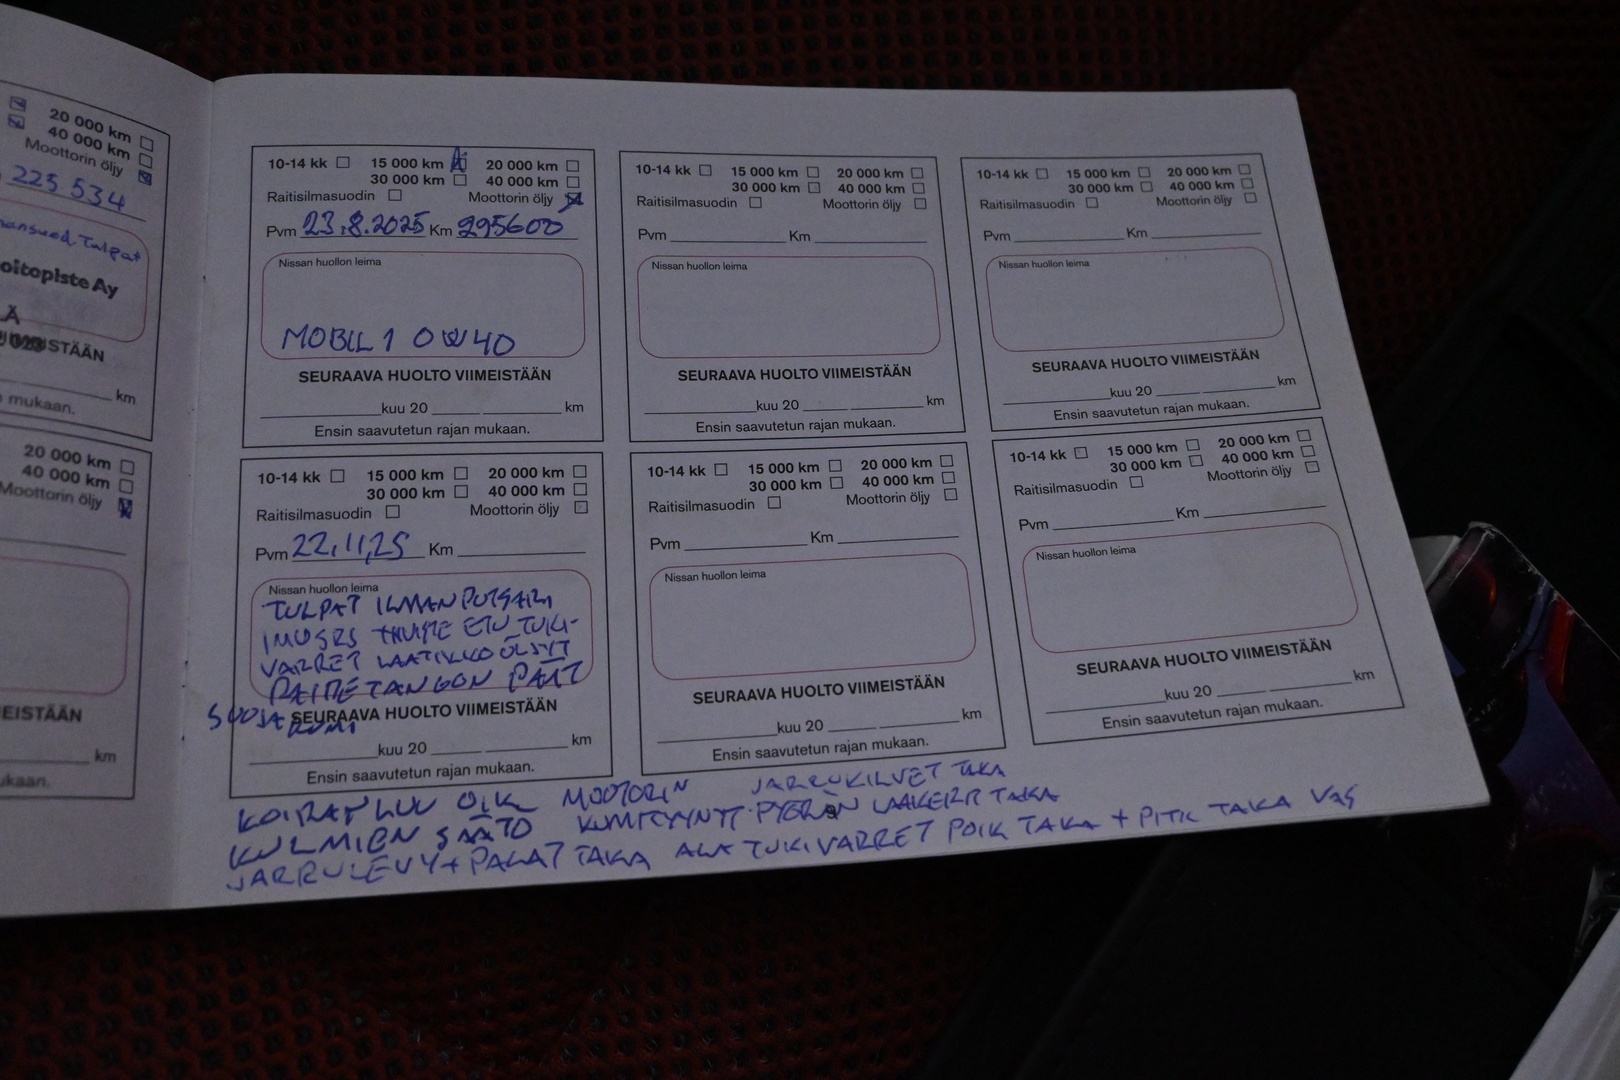 20 000 km
40 000 km
Moottorin öljy
225 534
Tulpat
oitopiste Ay
LÄ
ISTÄÄN
km
mukaan.
20 000 km
40 000 km
Moottorin öljy
EISTÄÄN
km
ukaan.
10-14 kk 15 000 km 20 000 km
30 000 km 40 000 km
Raitisilmasuodin Moottorin öljy
Pvm 23.8.2025 Km 295600
Nissan huollon leima
MOBIL 1 0W40
SEURAAVA HUOLTO VIIMEISTÄÄN
kuu 20 km
Ensin saavutetun rajan mukaan.
10-14 kk 15 000 km 20 000 km
30 000 km 40 000 km
Raitisilmasuodin Moottorin öljy
Pvm Km
Nissan huollon leima
SEURAAVA HUOLTO VIIMEISTÄÄN
kuu 20 km
Ensin saavutetun rajan mukaan.
10-14 kk 15 000 km 20 000 km
30 000 km 40 000 km
Raitisilmasuodin Moottorin öljy
Pvm Km
Nissan huollon leima
SEURAAVA HUOLTO VIIMEISTÄÄN
kuu 20 km
Ensin saavutetun rajan mukaan.
10-14 kk 15 000 km 20 000 km
30 000 km 40 000 km
Raitisilmasuodin Moottorin öljy
Pvm 22.11.25 Km
Nissan huollon leima
TULPAT ILMAN
ETU TUKI-
VARRET LAATIKKOÖLJYT
TANGON PÄÄT
SUOJA
SEURAAVA HUOLTO VIIMEISTÄÄN
KUMI
kuu 20 km
Ensin saavutetun rajan mukaan.
10-14 kk 15 000 km 20 000 km
30 000 km 40 000 km
Raitisilmasuodin Moottorin öljy
Pvm Km
Nissan huollon leima
SEURAAVA HUOLTO VIIMEISTÄÄN
kuu 20 km
Ensin saavutetun rajan mukaan.
10-14 kk 15 000 km 20 000 km
30 000 km 40 000 km
Raitisilmasuodin Moottorin öljy
Pvm Km
Nissan huollon leima
SEURAAVA HUOLTO VIIMEISTÄÄN
kuu 20 km
Ensin saavutetun rajan mukaan.
KOIRAN LUU OIK MOOTORIN JARRUKILVET TAKA
KULMIEN SÄÄTÖ PYÖRÄN LAAKERIT TAKA
JARRULEVY + PALAT TAKA ALA TUKIVARRET POIK TAKA + PITK TAKA VAS